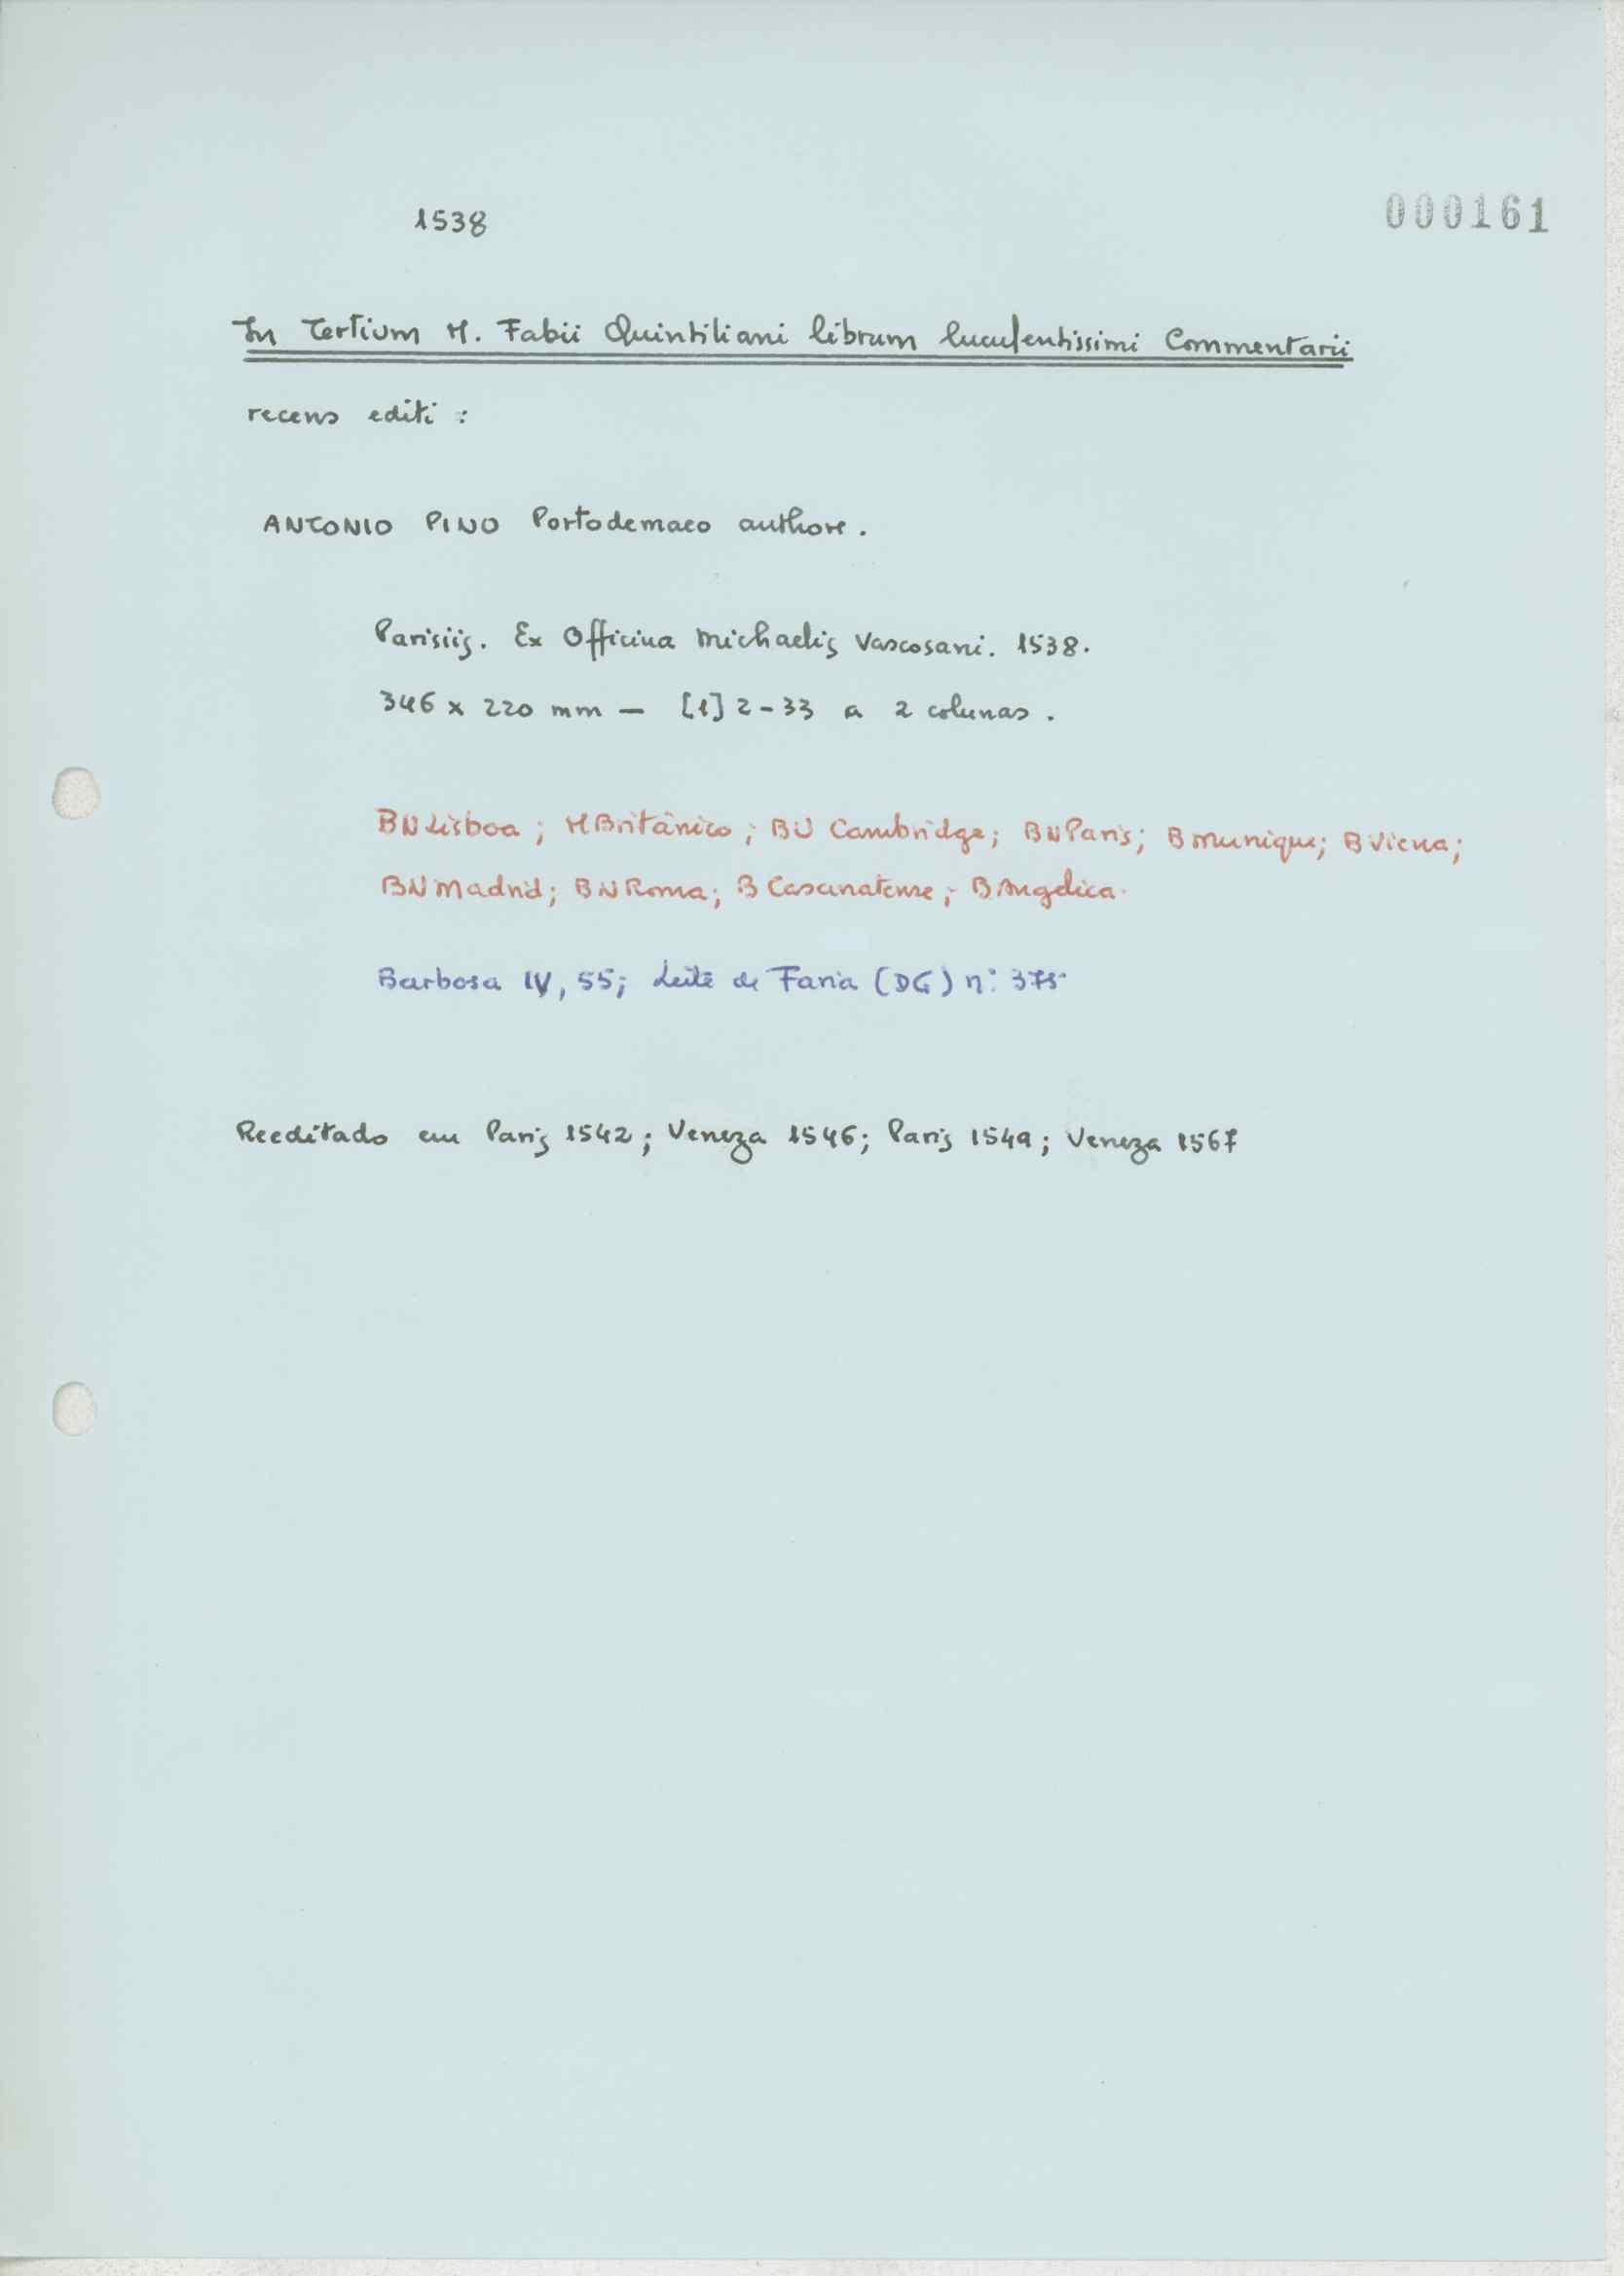 1538
000161
In Tertium M. Fabii Quintiliani librum luculentissimi Commentarii
recens editi :
ANTONIO PINO Portodemaeo authore.
Parisiis. Ex Officina Michaelis Vascosani. 1538.
346 x 220 mm — [1] 2-33 a 2 colunas.
BN Lisboa ; M Britânico ; BU Cambridge; BN Paris; B Munique; B Viena;
BN Madrid; BN Roma; B Casanatense ; B Angelica.
Barbosa IV, 55; Leite de Faria (DG) nº 375
Reeditado em Paris 1542 ; Veneza 1546; Paris 1549 ; Veneza 1567